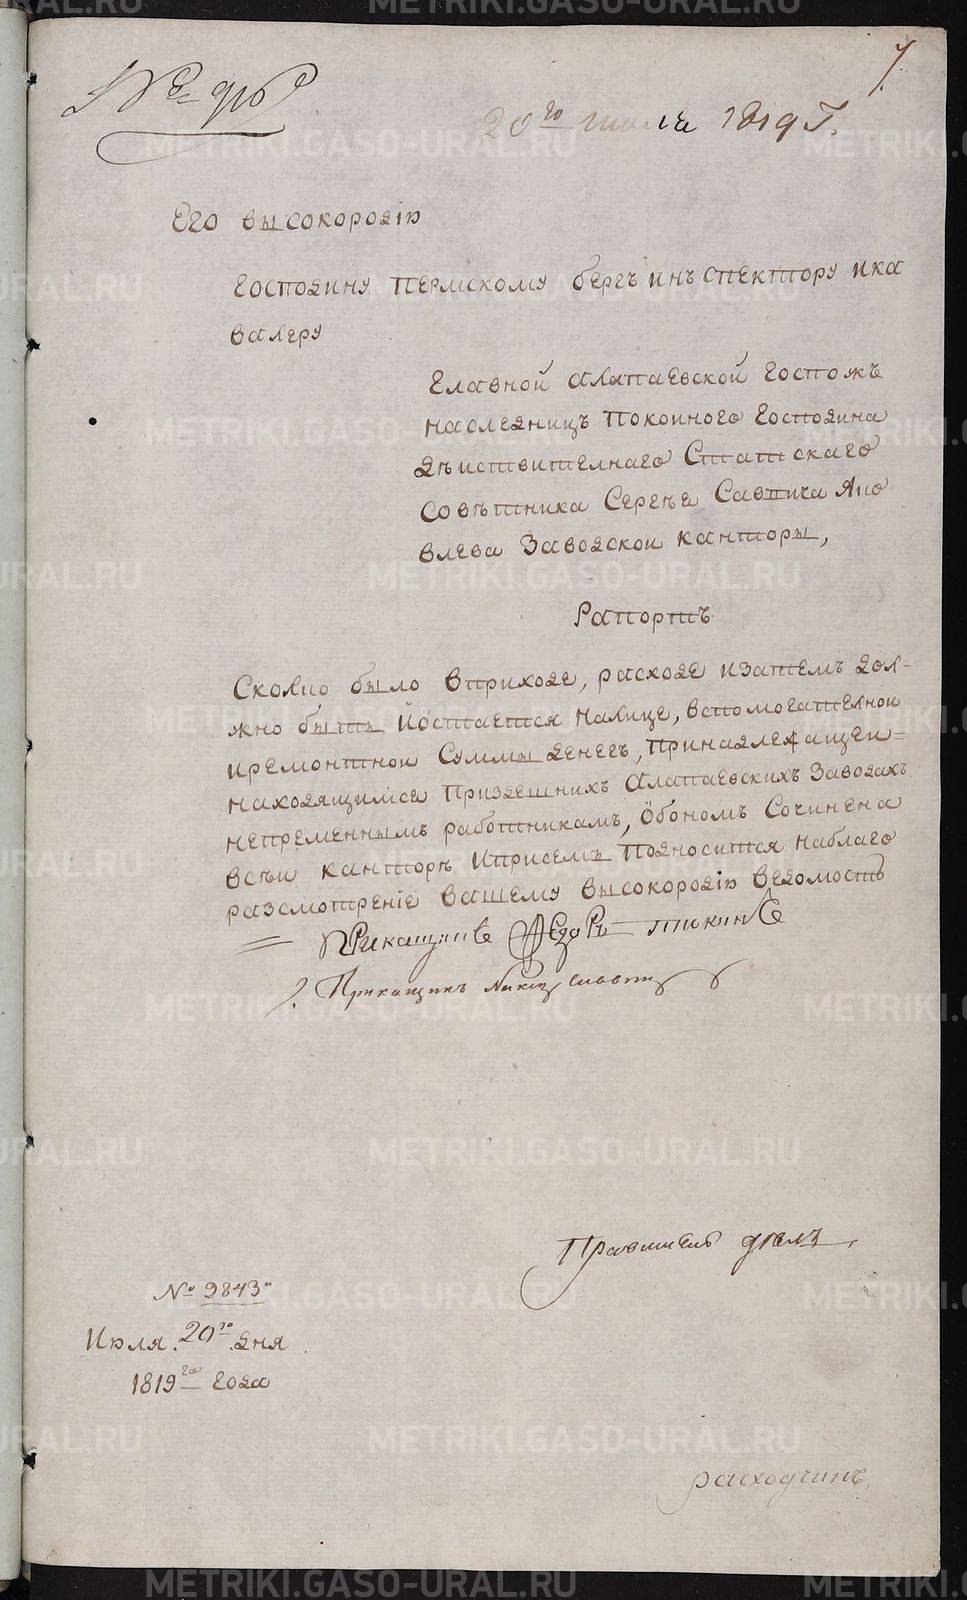 7.
20го июля 1819 Г.
Его высокородію
Господину пермскому бергъ инъспектору ика
валеру
Главной алапаевской госпожъ
наследницъ покоиного Господина
дѣиствителнаго Статскаго
совѣтника Сергѣя Саввича Яко
влева Заводской канторы,
Рапортъ
Сколко было вприходе, расходе изатемъ дол-
жно быть иостается налице, вспомогателнои
иремонтнои Суммы денегъ, принадлежащеи=
находящимся приздешнихъ Алапаевскихъ Заводахъ
непременнымъ работникамъ, обономъ Сочинена
всѣи канторѣ иприсемъ подносится наблаго
разсмотреніе вашему высокородію ведомость
Прикащикъ Федоръ
Прикащикъ
Правитель дѣлъ
№ 9843й
Июля. 20го. дня
1819го года
METRIKI.GASO-URAL.RU